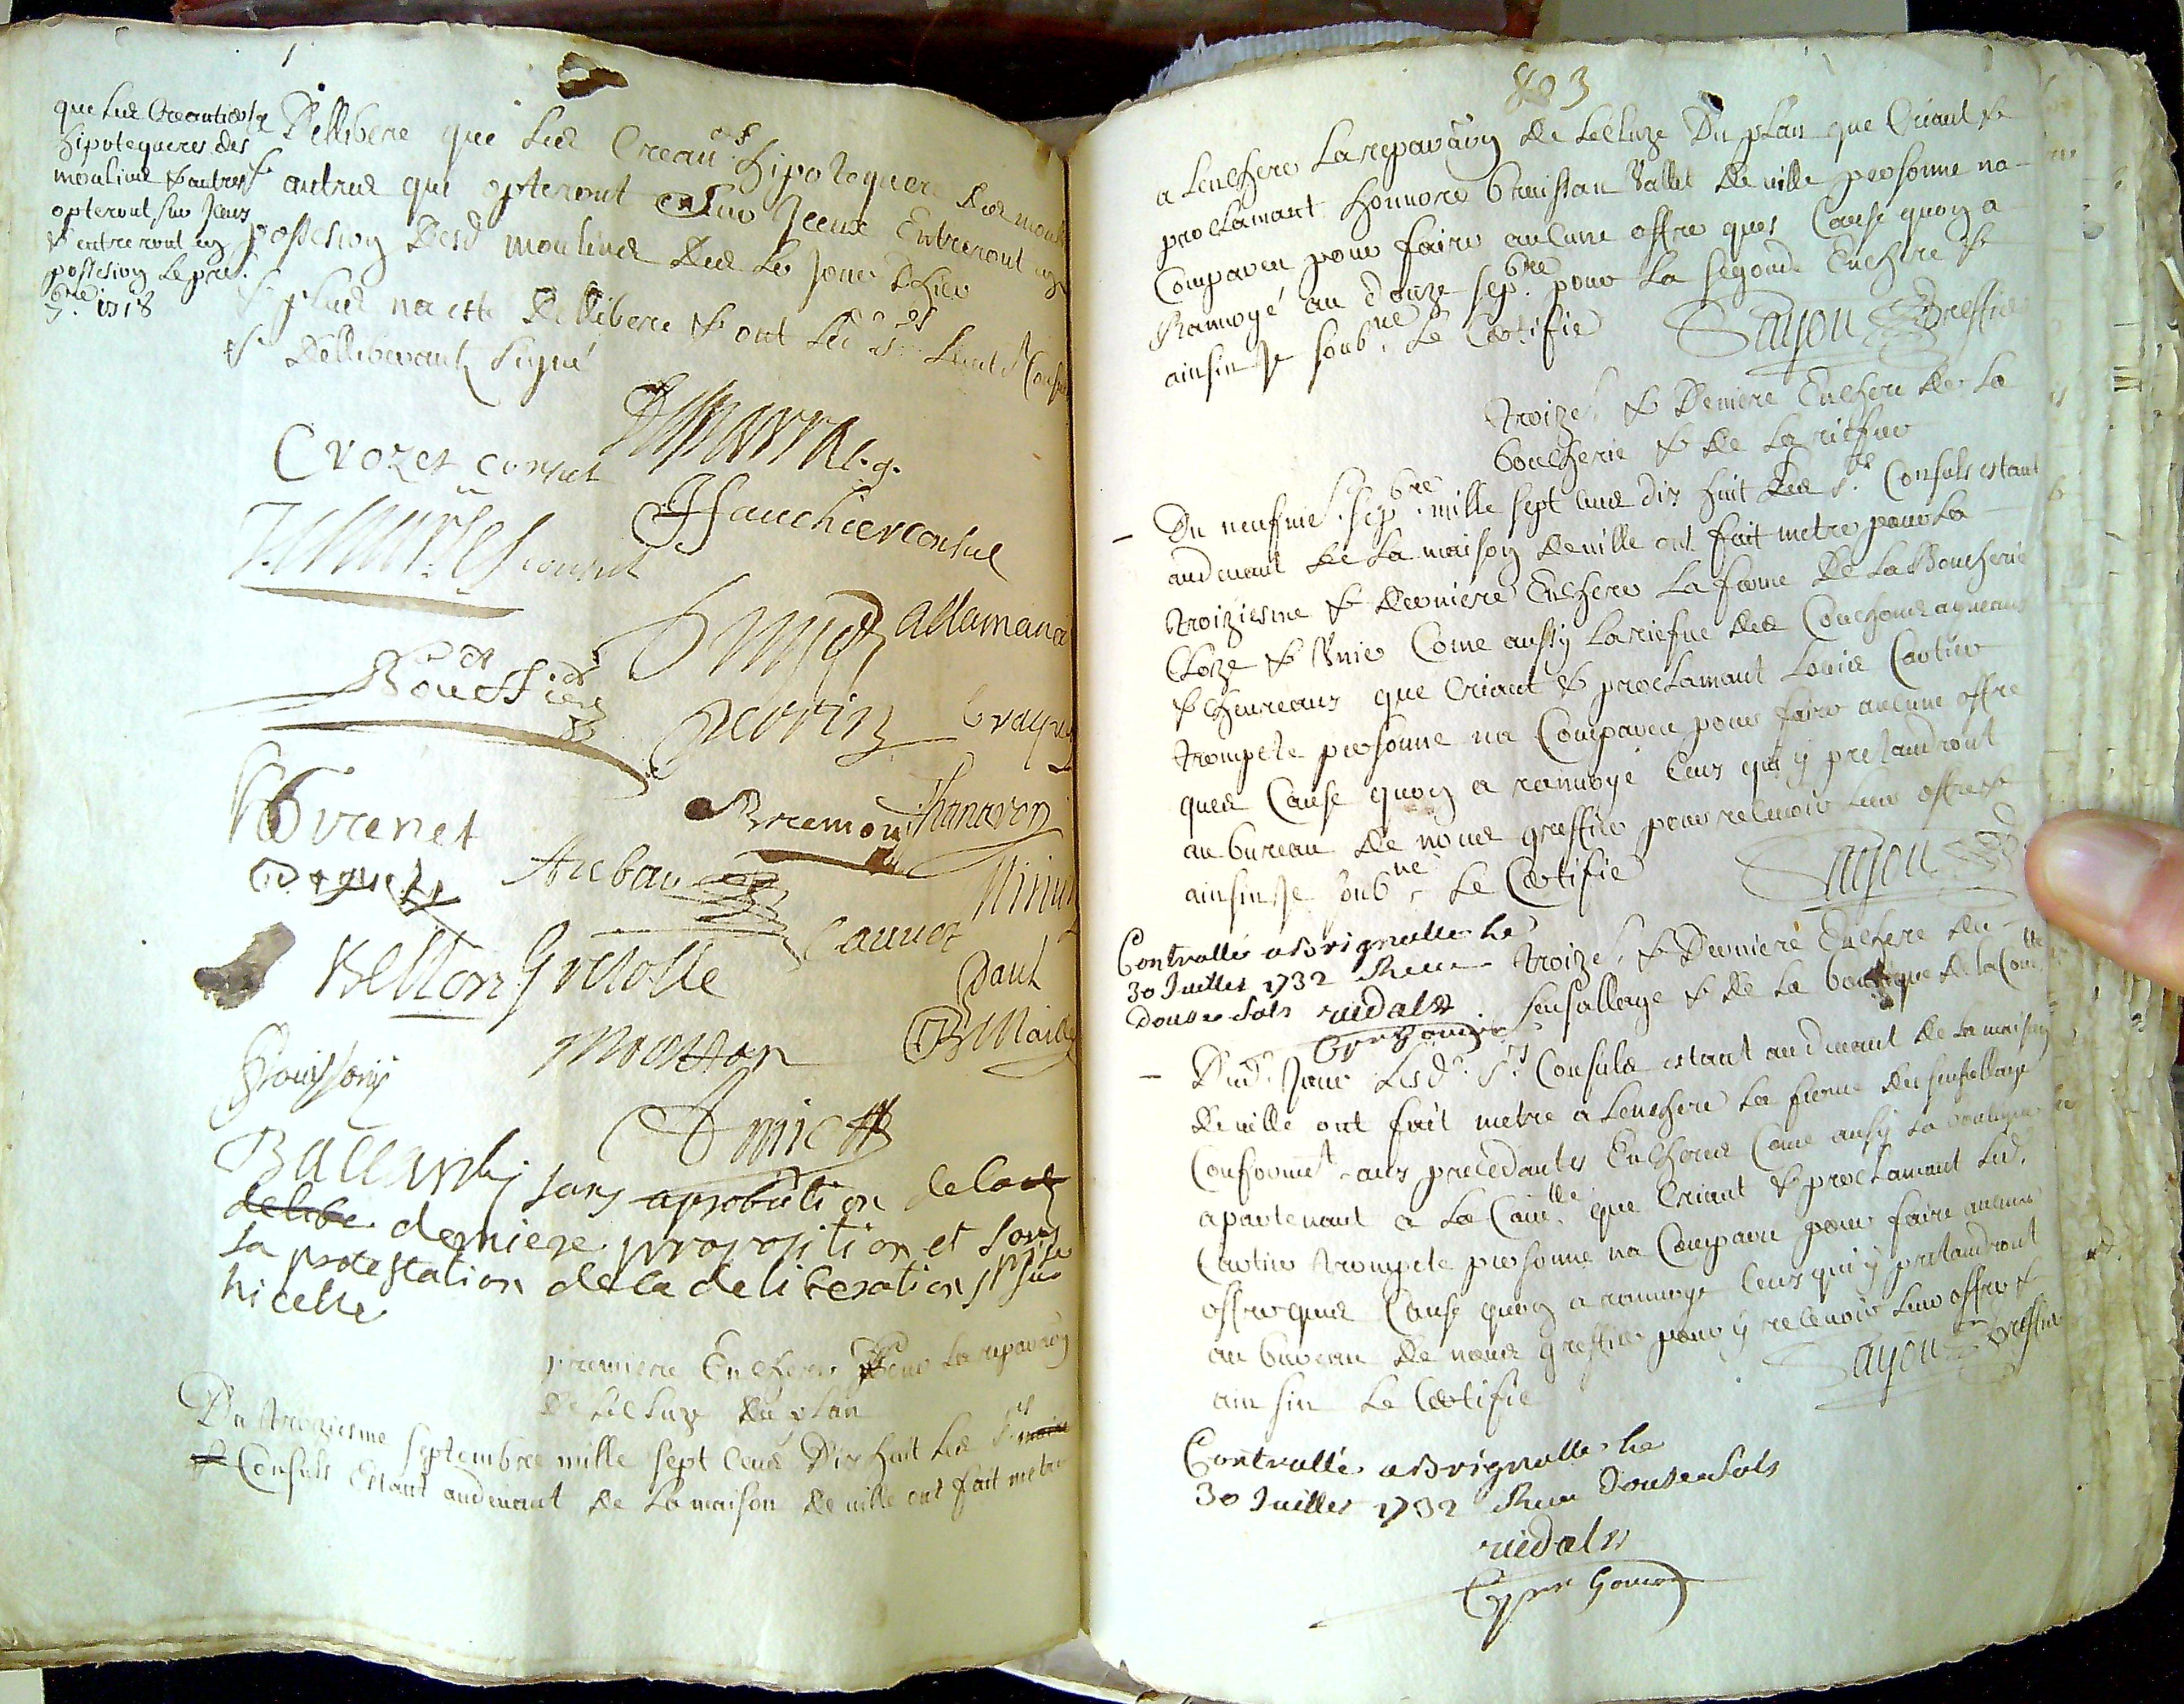 que les Creantiers
hipotequeres des
moulins & autres
opteront sur Iceux
& entreront en
possesion le pre.
7.bre 1718
Dellibere que les Crean.rs hipotequere des moul
& autres que opteront sur Iceux Entreront en
possesion Desd moulins des le Jour Dhier
& plus na este Dellibere & ont led Srs Lieut & Consuls
& Delliberants Signé
Crozet consul
Fauchier consul
consul
Allamand
Perrin
Brenet
Bremon
Thanaron
Arebau
Caunot
Bellon
Paul
Mouston
Maille
Amic
sans aprobation de la
delibe derniere proposition et sous
la protestation de la deliberation prise
hicelle
premiere Enchere Pour la reparãon
de lecluze du plan
Du troiziesme septembre mille sept Cens Dix huit les Srs
& Consuls Estant audevant de la maison de ville ont fait metre
803
a Lenchere La reparãon de lecluze Du plan que Criant &
proclamant honnore Vallet de ville personne na
Compareu pour faire aulcune offre ques Cause quon a
Ranvoyé au douze sep.bre pour la segonde Enchere &
ainsin Je soub.né Le Certifie Sayou Greffie
troize. & Derniere Enchere de la
boucherie & de la riefve
Du neufvie. sep.bre mille sept cens dix huit les Srs Consuls estant
audevant de la maison de ville ont fait metre pour la
troiziesme & derniere Enchere La ferme de la Boucherie
Cloze & Unie Come aussy la riefve des Couchons agneaux
& Chevreaux que Criant & proclamant Louis Cartier
trompete personne na Compareu pour faire aucune offre
ques Cause quon a ranvoyé Ceux qui y pretandront
au bureau de nous greffier pour recevoir leur offre &
ainsin Je soub.né Le Certifie Sayou
Controllé a Brignolle le
30 Juillet 1732 Receu
douse sols vidal
troize. & Derniere Enchere du
sensallage & de la boutique de la Com.té
Dud. Jour Lesd. Srs Consuls estant audevant de la maison
de ville ont fait metre a Lenchere la ferme du sensallage
Conformt. aux precedantes Encheres Come aussy la boutique
apartenant a la Com.té que Criant & proclamant led.
Cartier trompete personne na Compareu pour faire aucune
offre ques Cause quon a ranvoyé Ceux qui y pretandront
au bureau de nous greffier pour y recevoir leur offre &
ainsin Le Certifie Sayou Greffier
Controllé a Brignolle le
30 Juillet 1732 Receu douse sols
vidal